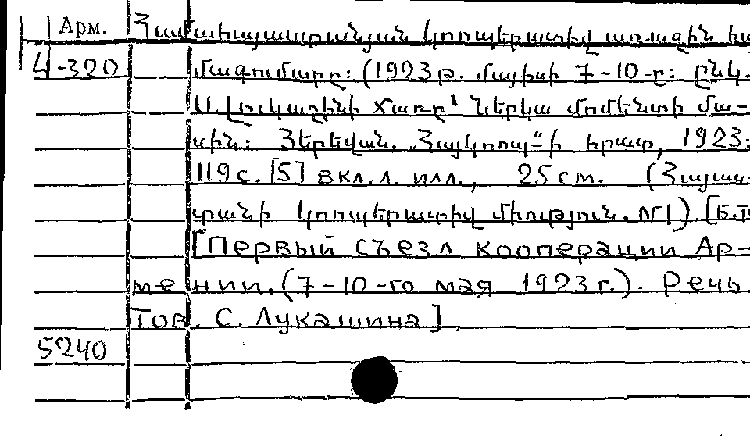 Арм. Համահայաստանյան կոոպերատիվ առաջին հա
4-320 մագումարը: (1923 թ. մայիսի 7-10-ը: ընկ.
Ս. Լուկաշինի ճառը՝ ներկա մոմենտի մա-
սին: Յերեվան. „Հայկոոպ“-ի հրատ, 1923.
119 с. [5] вкл. л. илл., 25 cm. (Հայաս-
տանի կոոպերատիվ միություն. №1) [Б.т.
[Первый съезд кооперации Ар-
мении. (7-10-го мая 1923 г.). Речь
тов. С. Лукашина]
5240